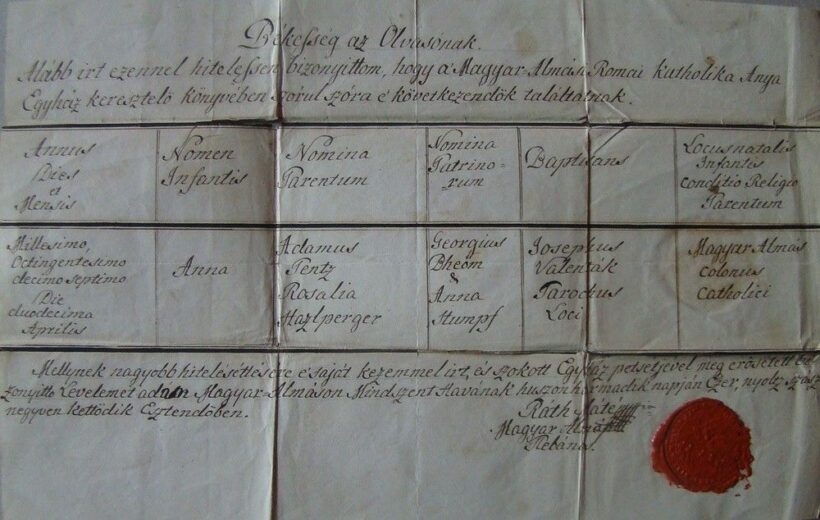 Békesseg az Olvasónak.
Alább irt ezennel hitelessen bizonyittom, hogy a Magyar Almási Romai Katholika Anya
Egyház keresztelö könyvében szórul szóra é következendök taláttatnak.
Annus
Dies
et
Mensis
Nomen
Infantis
Nomina
Parentum
Nomina
Patrino-
rum
Baptisans
Locus natalis
Infantis
Conditio Religio
Parentum
Millesimo,
Octingentesimo
decimo septimo
Die
duodecima
Aprilis
Anna
Adamus
Pentz
Rosalia
Hazlperger
Georgius
Bheom
&
Anna
Stumpf
Josephus
Valenták
Parochus
Loci
Magyar Almas
Colonus
Catholici
Mellynek nagyobb hiteleséttésére é saját kezemmel irt, és szokott Egyház petsetjével meg erösétett bi
zonyitto Levelemet adám Magyar-Almáson Mindszent Havának huszon harmadik napján Ezer, nyoltz száz
negyven kettödik Esztendöben.
Ráth Máté
Magyar Almási
Plebános.